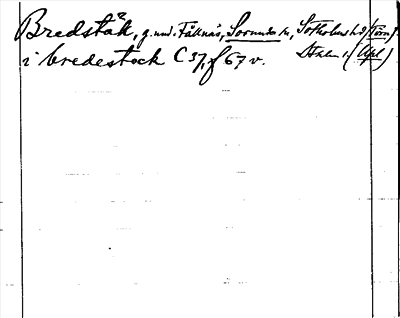 Bredstäk, g. und. Fållnäs, Sorunda sn, Sotholms hd (Törn).
i bredestock C 37, f 67 v. Sthlm l. (Upl)